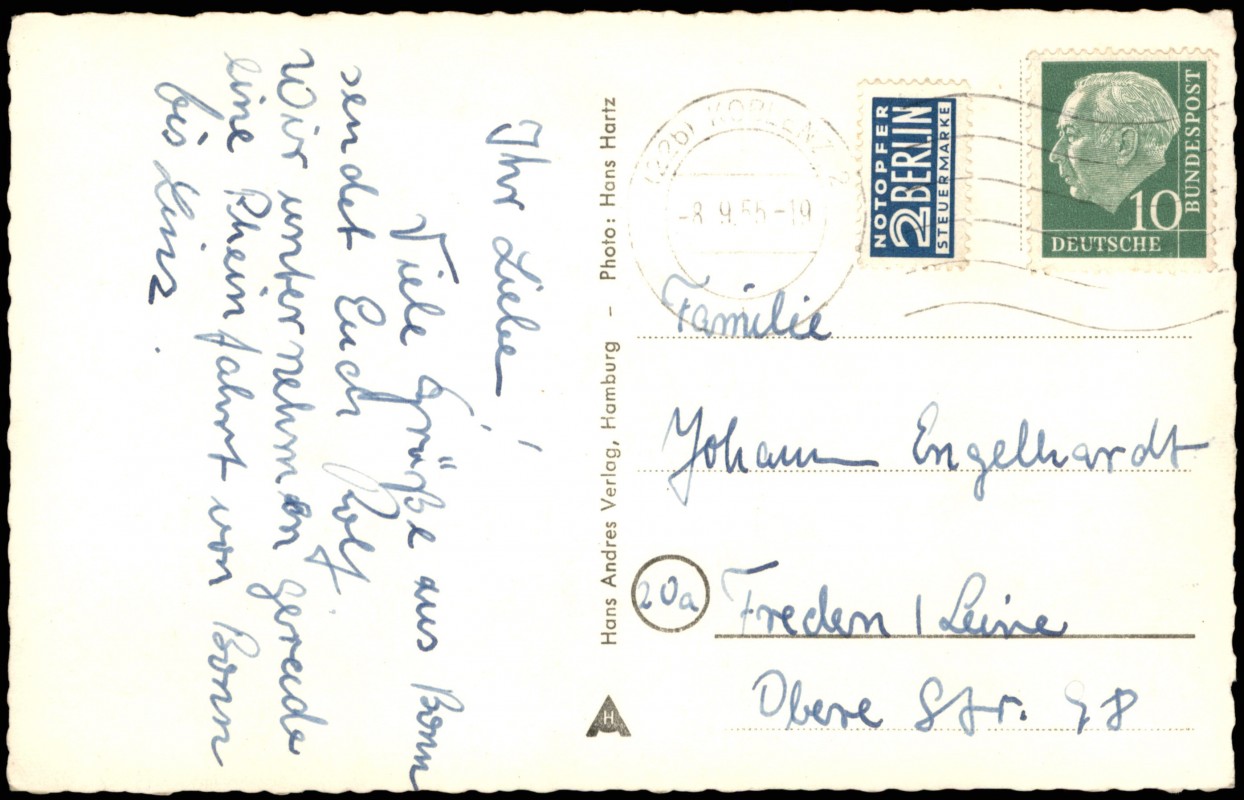 Ihr Lieben!
Viele Grüße aus Bonn
sendet Euch Rolf.
Wir unternehmen gerade
eine Rheinfahrt von Bonn
bis Linz.
Hans Andres Verlag, Hamburg – Photo: Hans Hartz
HA
(22b) KOBLENZ 2
-8.9.55-19
NOTOPFER
2 BERLIN
STEUERMARKE
10
DEUTSCHE
BUNDESPOST
Familie
Johann Engelhardt
20a
Freden / Leine
Obere Str.